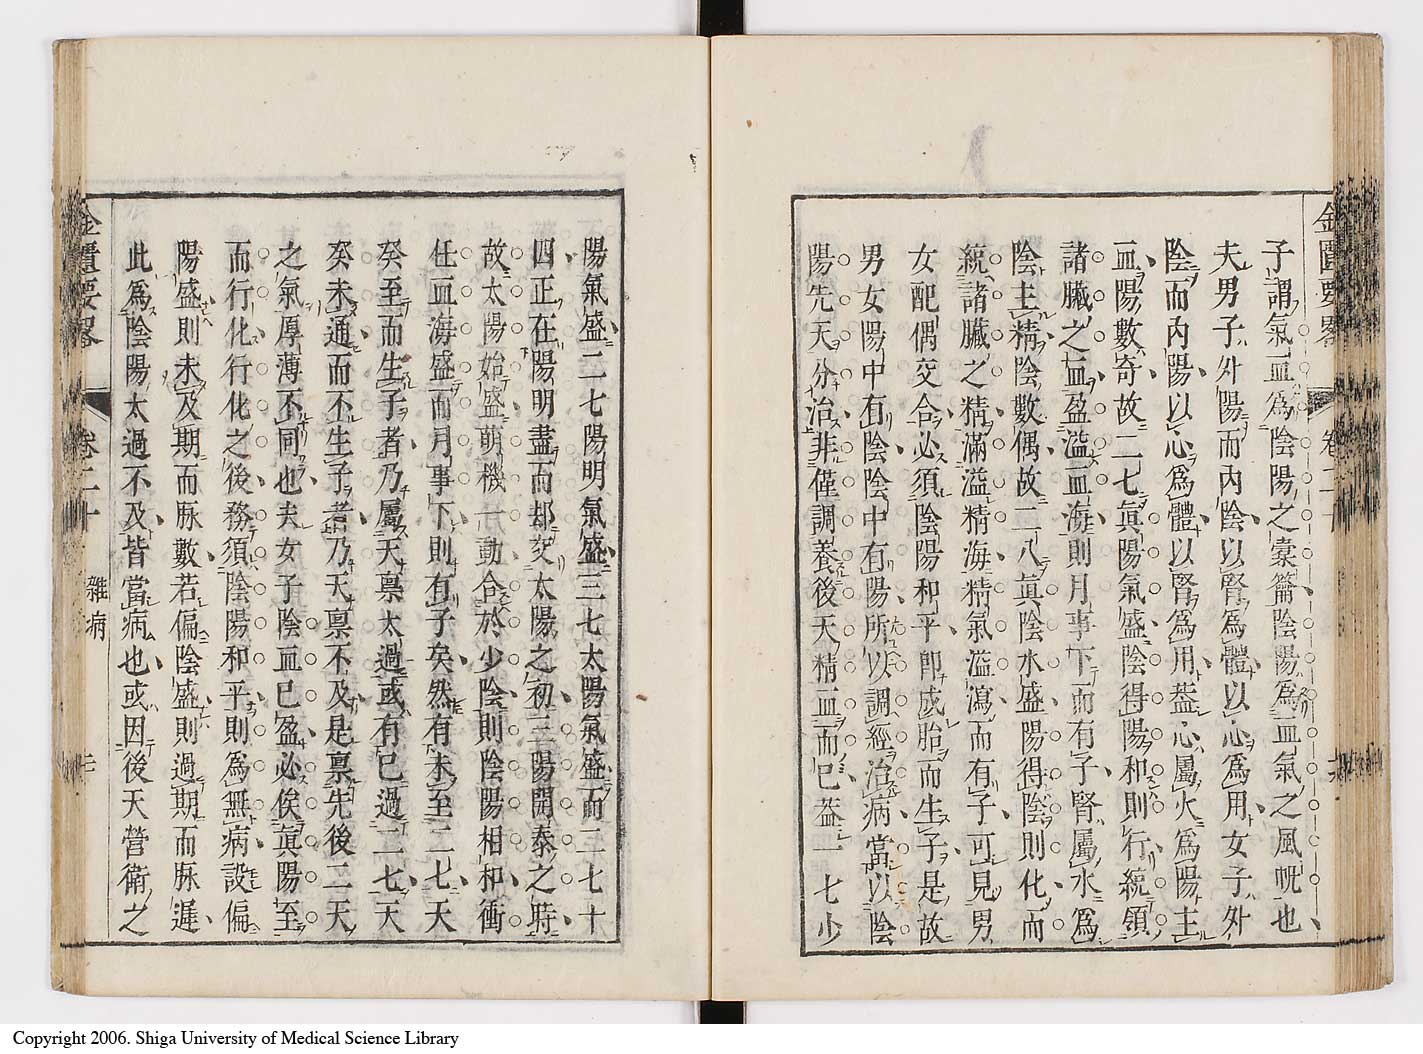 金匱要畧 卷二十
子謂氣血爲陰陽之橐籥陰陽爲血氣之風帆也
夫男子外陽而內陰以腎爲體以心爲用女子外
陰而內陽以心爲體以腎爲用葢心屬火爲陽主
血陽數奇故二七眞陽氣盛陰得陽和則行統領
諸臟之血盈溢血海則月事下而有子腎屬水爲
陰主精陰數偶故二八眞陰水盛陽得陰則化而
統諸臟之精滿溢精海精氣溢瀉而有子可見男
女配偶交合必須陰陽和平卽成胎而生子是故
男女陽中有陰陰中有陽所以調經治病當以陰
陽先天分治非僅調養後天精血而已葢一七少
陽氣盛二七陽明氣盛三七太陽氣盛而二七十
四正在陽明盡而却交太陽之初三陽開泰之時
故太陽始盛萌機一動合於少陰則陰陽相和衝
任血海盛而月事下則有子矣然有未至二七天
癸至而生子者乃屬天禀太過或有已過二七天
癸未通而不生子者乃天禀不及是禀先後二天
之氣厚薄不同也夫女子陰血已盈必俟眞陽至
而行化行化之後務須陰陽和平則爲無病設偏
陽盛則未及期而脉數若偏陰盛則過期而脉遲
此爲陰陽太過不及皆當病也或因後天營衛之
金匱要畧 卷二十 雜病
Copyright 2006. Shiga University of Medical Science Library